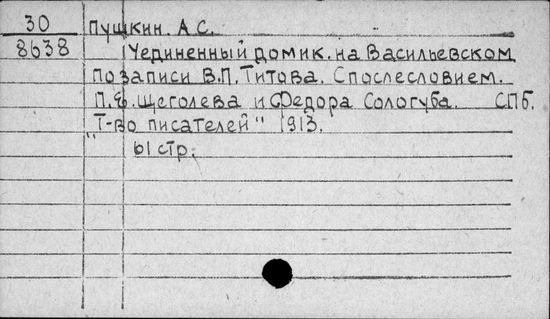 30 Пушкин. А.С.
8638 Уединенный домик. на Васильевском
По записи В.П. Титова. Спослесловием.
П.Е. Щеголева и Федора Сологуба. СПб.
"Т-во писателей" 1913.
61 стр.